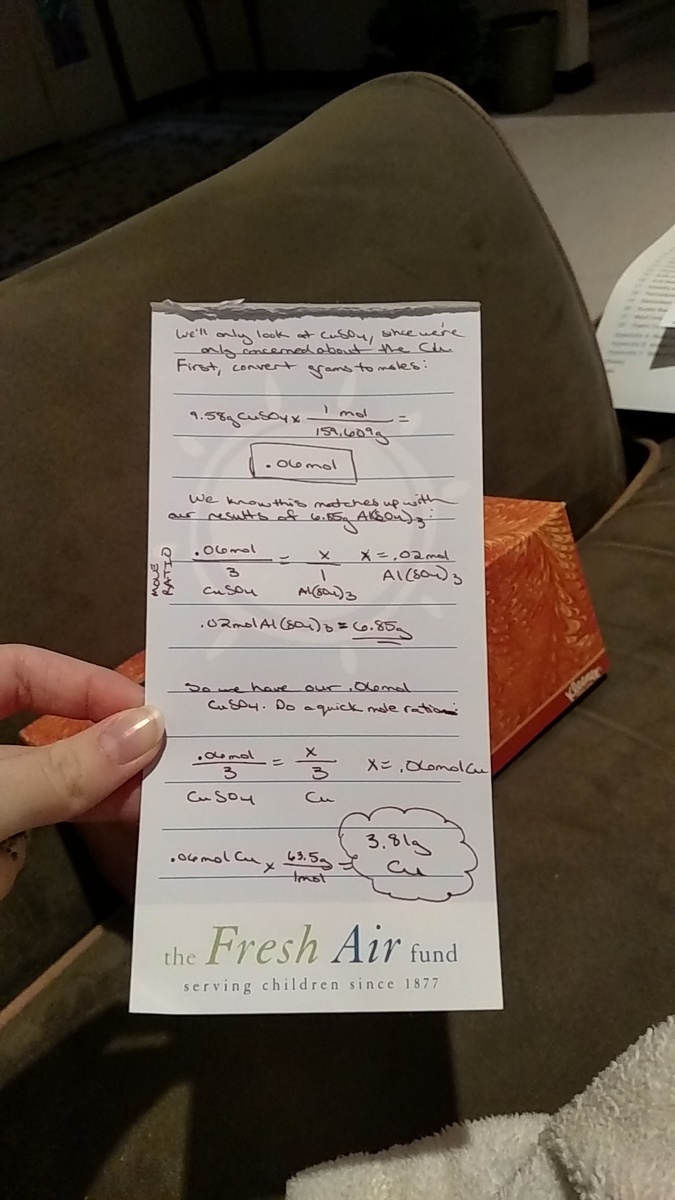 We'll only look at CuSO4, since we're
only concerned about the Cu
First, convert grams to moles:
9.58g CuSO4 x 1 mol / 159.609g =
.06mol
We know this matches up with
our results of 6.85g Al(SO4)3:
MOLE RATIO
.06mol / 3 = x / 1 x = .02mol
CuSO4 Al(SO4)3 Al(SO4)3
.02mol Al(SO4)3 = 6.85g
So we have our .06mol
CuSO4. Do a quick mole ratio:
.06mol / 3 = x / 3 x = .06mol Cu
CuSO4 Cu
.06mol Cu x 63.5g / 1mol = 3.81g Cu
the Fresh Air fund
serving children since 1877
Kleenex